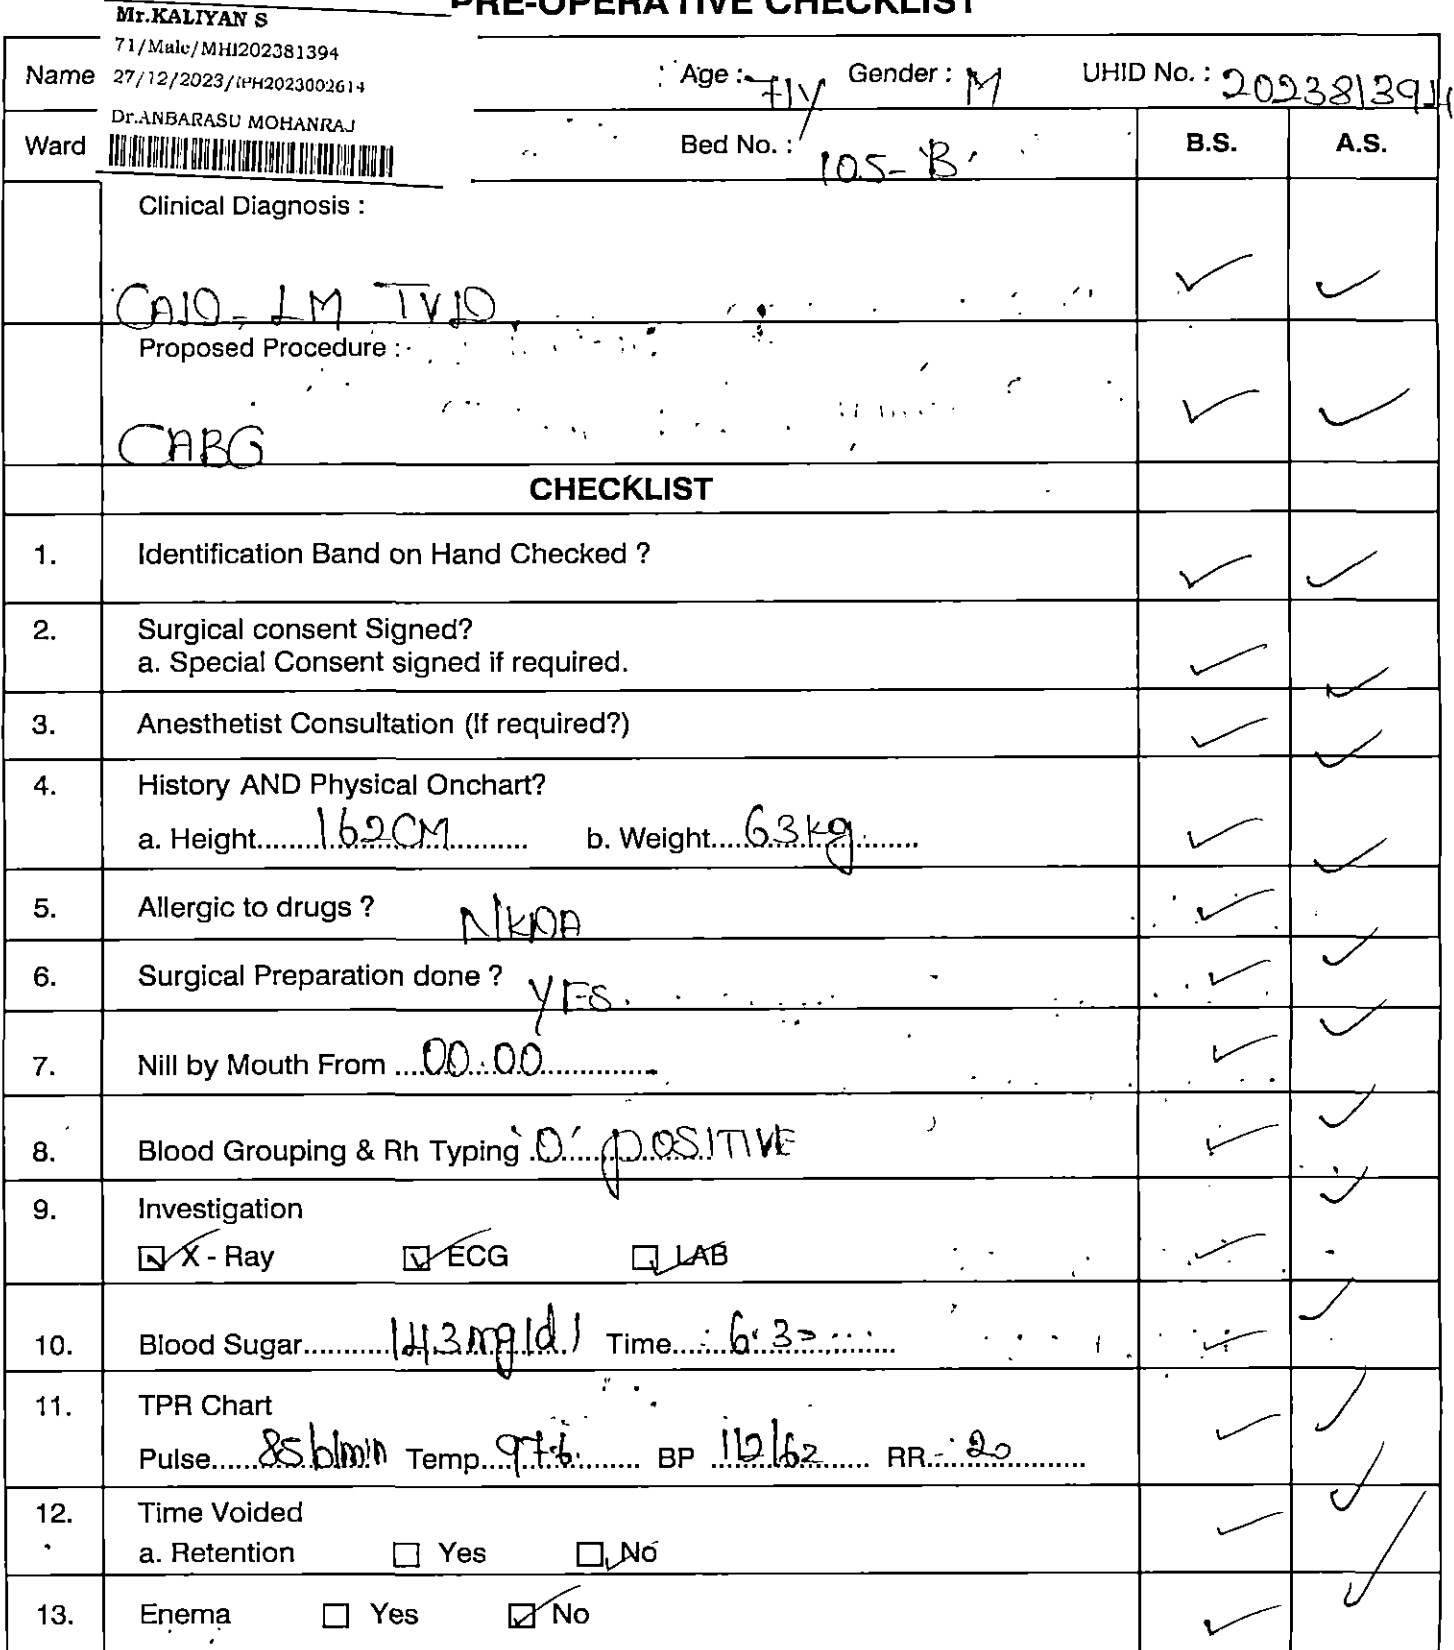 PRE-OPERATIVE CHECKLIST
Mr.KALIYAN S
71/Male/MHI202381394
27/12/2023/IPH2023002614
Dr.ANBARASU MOHANRAJ
Name Age : 71Y Gender : M UHID No. : 202381394
Ward Bed No. : 105-'B' B.S. A.S.
Clinical Diagnosis :
CAD - LM TVD
Proposed Procedure :
CABG
CHECKLIST
1. Identification Band on Hand Checked ?
2. Surgical consent Signed?
a. Special Consent signed if required.
3. Anesthetist Consultation (If required?)
4. History AND Physical Onchart?
a. Height........162CM........... b. Weight....63kg.......
5. Allergic to drugs ? NKDA
6. Surgical Preparation done ? YES.
7. Nill by Mouth From ....00:00.............
8. Blood Grouping & Rh Typing 'O' POSITIVE
9. Investigation
X - Ray ECG LAB
10. Blood Sugar...........143mg/dl Time.....6.30......
11. TPR Chart
Pulse.....85b/min Temp...97.6....... BP 112/62....... RR - 20
12. Time Voided
a. Retention Yes No
13. Enema Yes No